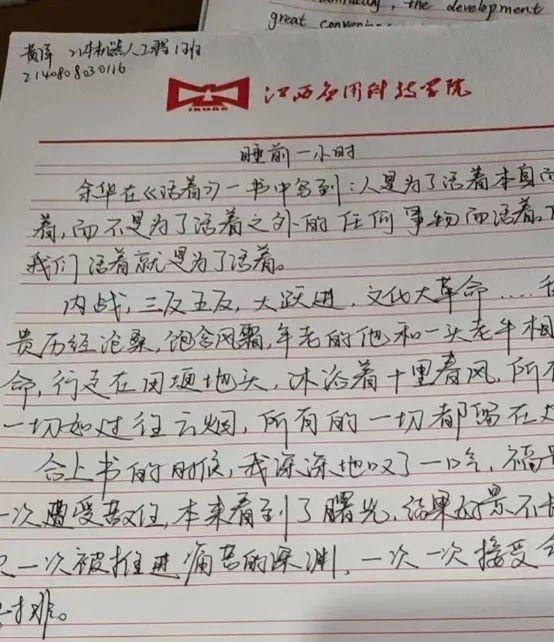 the development
great
黄泽 21机器人工程1班
2140808030116
JXUAS
江西应用科技学院
睡前一小时
余华在《活着》一书中写到：人是为了活着本身而
着，而不是为了活着之外的任何事物而活着。
我们活着就是为了活着。
内战，三反五反，大跃进，文化大革命……
贵历经沧桑，饱含风霜，年老的他和一头老牛相
命，行走在田埂地头，沐浴着十里春风，所有
一切如过往云烟，所有的一切都留在
合上书的时候，我深深地叹了一口气，福贵
一次遭受苦难，本来看到了曙光，结果好景不
又一次被推进痛苦的深渊，一次一次接受
难。